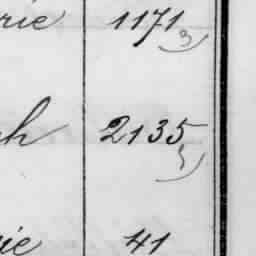 rie 1171
3)
h 2135
5)
ie 41